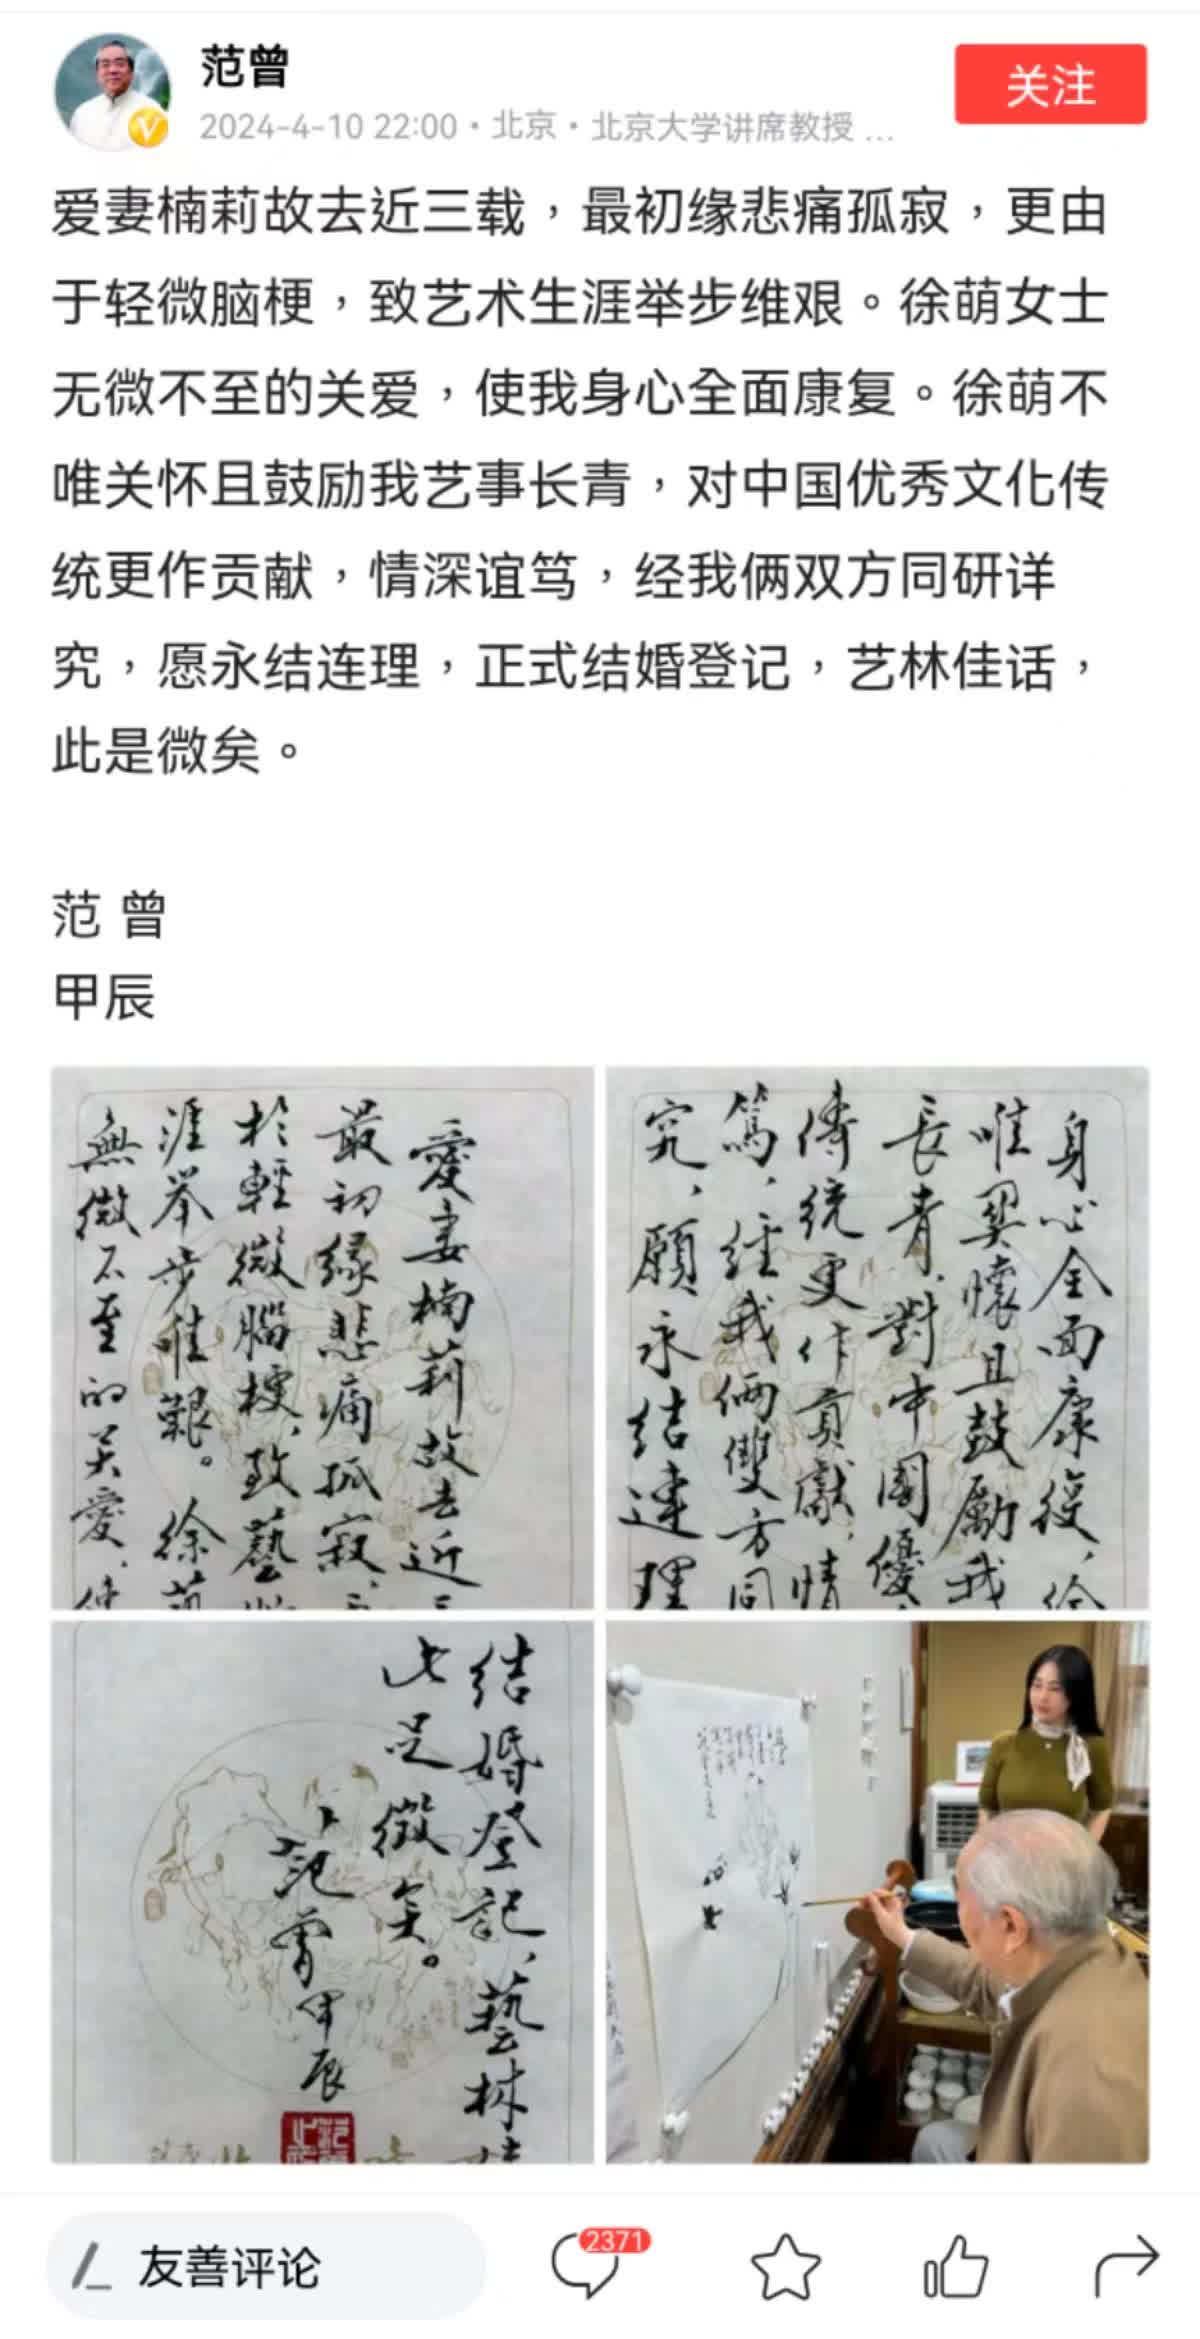 范曾
关注
2024-4-10 22:00·北京·北京大学讲席教授 ...
爱妻楠莉故去近三载，最初缘悲痛孤寂，更由
于轻微脑梗，致艺术生涯举步维艰。徐萌女士
无微不至的关爱，使我身心全面康复。徐萌不
唯关怀且鼓励我艺事长青，对中国优秀文化传
统更作贡献，情深谊笃，经我俩双方同研详
究，愿永结连理，正式结婚登记，艺林佳话，
此是微矣。
范 曾
甲辰
愛妻楠莉故去近三
最初緣悲痛孤寂、
於輕微腦梗、致藝
涯举步唯艱。徐萌
無微不至的关愛、使
身心全面康復、徐
唯関懷且鼓勵我
長青、對中國優
傳統更作貢獻、情
篤、經我俩雙方同
究、願永结連理
结婚登記、藝林
此是微矣。
范曾甲辰
友善评论
2371